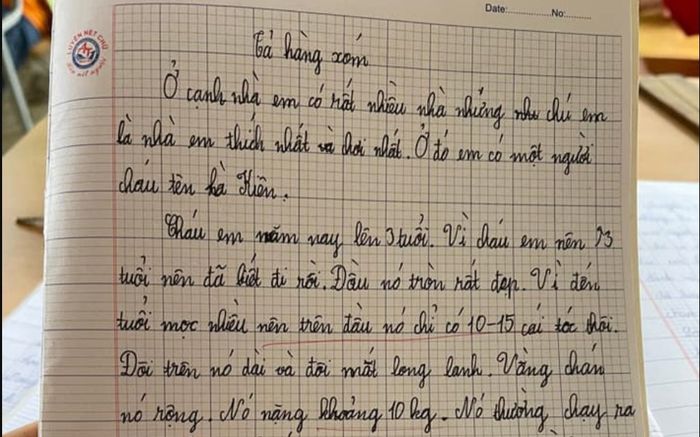 Date:..............No:..........
LUYỆN NÉT CHỮ
Tả hàng xóm
Ở cạnh nhà em có rất nhiều nhà nhưng nhà chú em
là nhà em thích nhất và chơi nhất. Ở đó em có một người
cháu tên hà Hiên.
Cháu em năm nay lên 3 tuổi. Vì cháu em nên 3
tuổi nên đã biết đi rồi. Đầu nó tròn rất đẹp. Vì đến
tuổi mọc nhiều nên trên đầu nó chỉ có 10-15 cái tóc thôi.
Đôi trên nó dài và đôi mắt long lanh. Vầng chán
nó rộng. Nó nặng khoảng 10 kg. Nó thường chạy ra